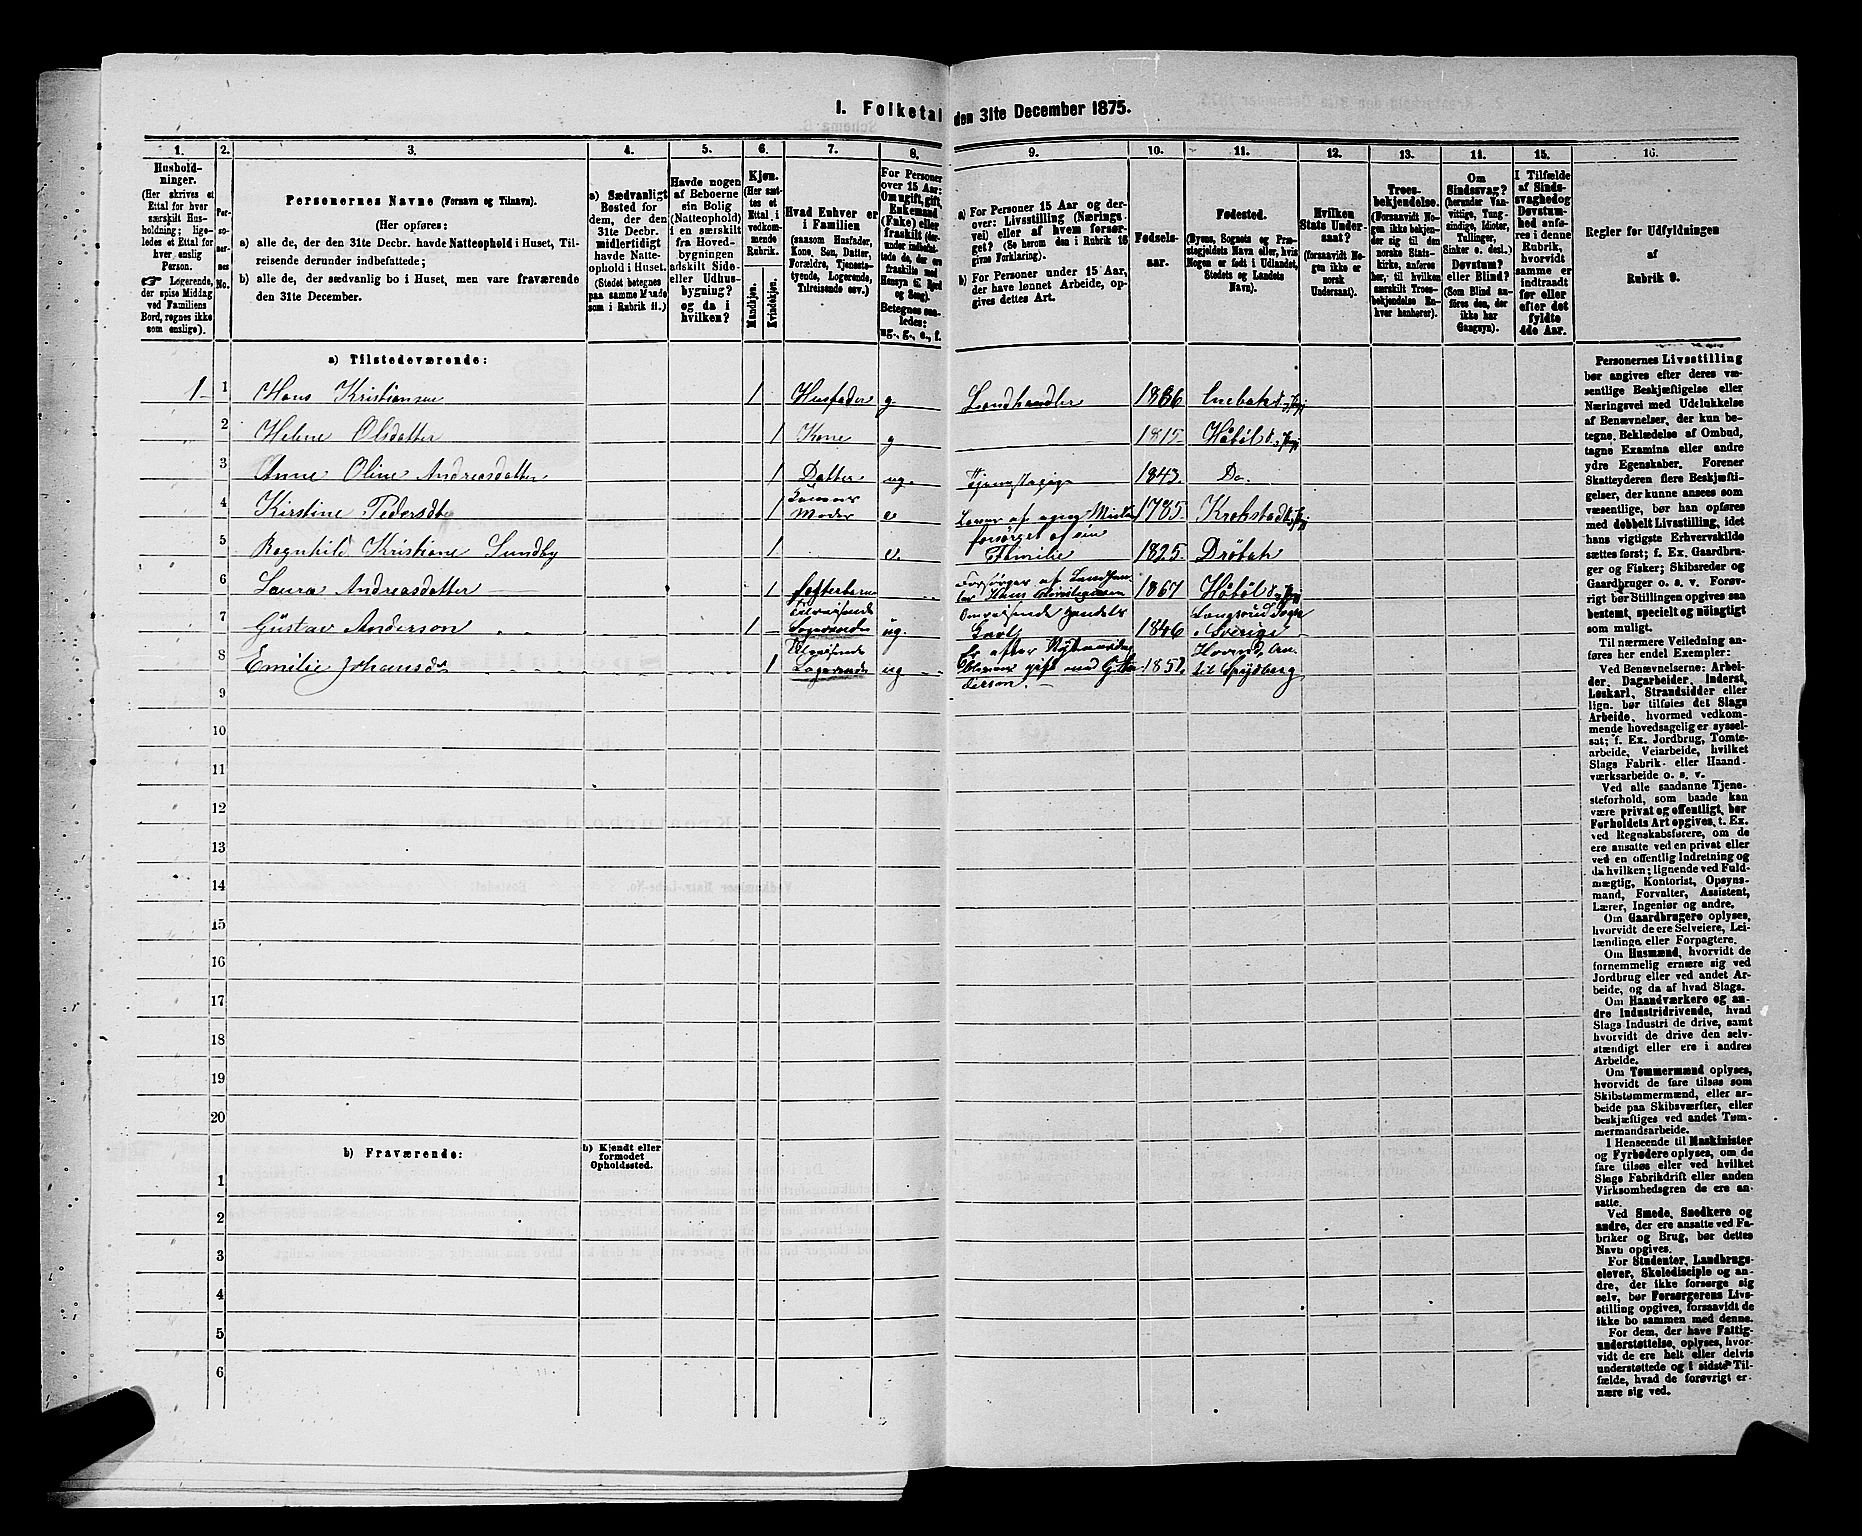 I. Folketal den 31te December 1875.
1. 2. 3. 4. 5. 6. 7. 8. 9. 10. 11. 12. 13. 14. 15. 16.
Hushold-
ninger.
(Her skrives et
Ettal for hver
særskilt Hus-
holdning; lige-
ledes et Ettal for
hver enslig
Person.
☞ Logerende,
der spise Middag
ved Familiens
Bord, regnes ikke
som enslige).
Per-
so-
ner-
nes
No.
Personernes Navne (Fornavn og Tilnavn).
(Her opføres:
a) alle de, der den 31te Decbr. havde Natteophold i Huset, Til-
reisende derunder indbefattede;
b) alle de, der sædvanlig bo i Huset, men vare fraværende
den 31te December.
a) Sædvanligt
Bosted for
dem, der den
31te Decbr.
midlertidigt
havde Natte-
ophold i Huset.
(Stedet betegnes
paa samme Maade
som i Rubrik 11.)
Havde nogen
af Beboerne
sin Bolig
(Natteophold)
i en særskilt
fra Hoved-
bygningen
adskilt Side-
eller Udhus-
bygning?
og da i
hvilken?
Kjøn.
(Her sæt-
tes et
Ettal i
vedkom-
mende
Rubrik.
Mandkjøn.
Kvindekjøn.
Hvad Enhver er
i Familien
(saasom Husfader,
Kone, Søn, Datter,
Forældre, Tjeneste-
tyende, Logerende,
Tilreisende osv.)
For Personer
over 15 Aar:
Om ugift, gift,
Enkemand
(Enke) eller
fraskilt (der-
under indbefat-
tede de, der ere
fraskilte med
Hensyn til Bord
og Seng).
Betegnes saa-
ledes:
ug., g., e., f.
a) For Personer 15 Aar og der-
over: Livsstilling (Nærings-
vei) eller af hvem forsør-
get? (Se herom den i Rubrik 16
givne Forklaring).
b) For Personer under 15 Aar,
der have lønnet Arbeide, op-
gives dettes Art.
Fødsels-
aar.
Fødested.
(Byens, Sognets og Præ-
stegjeldets Navn eller, hvis
Nogen er født i Udlandet,
Stedets og Landets
Navn).
Hvilken
Stats Under-
saat?
(forsaavidt No-
gen ikke er
norsk
Undersaat).
Troes-
bekjendelse.
(Forsaavidt No-
gen ikke bekjen-
der sig til den
norske Stats-
kirke, anføres
her, til hvilken
særskilt Troes-
bekjendelse En-
hver henhører).
Om
Sindssvag?
(herunder Van-
vittige, Tung-
sindige, Idioter,
Tullinger,
Sinker o. desl.)
Døvstum?
eller Blind?
(Som Blind an-
føres den, der
ikke har
Gangsyn).
I Tilfælde
af Sinds-
svaghed og
Døvstum-
hed anfø-
res i denne
Rubrik,
hvorvidt
samme er
indtraadt
før eller
efter det
fyldte
4de Aar.
Regler for Udfyldningen
af
Rubrik 9.
a) Tilstedeværende:
1 1 Hans Kristiansen 1 Husfader g. Landhandler 1836
2 Helene Olsdatter 1 Kone g 1815. Håbøl
3 Anne Oline Andreasdatter 1 Datter ug. 1843. Do
4 Kirstine Pedersdtr 1 Konens Moder e Lever af egne Midler 1785. Krokstad
5 Ragnhild Kristiane Sundby 1 e. forsørget af sin Familie 1825. Drøbak
6 Laura Andreasdatter 1 Forsørges af Landhandler Hans Christiansen 1867 Håbøl
7 Gustav Anderson 1 Tilreisende Logerende ug. Omreisende Handels 1846 Sverige
8 Emilie Johansd 1 Tilreisende Logerende ug gift med G. Anderson. 1851. Spydberg
9
10
11
12
13
14
15
16
17
18
19
20
b) Fraværende:
b) Kjendt eller
formodet
Opholdssted.
1
2
3
4
5
6
Personernes Livsstilling
bør angives efter deres væ-
sentlige Beskjæftigelse eller
Næringsvei med Udelukkelse
af Benævnelser, der kun be-
tegne Beklædelse af Ombud,
tagne Examina eller andre
ydre Egenskaber. Forener
Skatteyderen flere Beskjæfti-
gelser, der kunne ansees som
væsentlige, bør han opføres
med dobbelt Livsstilling, idet
hans vigtigste Erhvervskilde
sættes først; f. Ex. Gaardbru-
ger og Fisker; Skibsreder og
Gaardbruger o. s. v. Forøv-
rigt bør Stillingen opgives saa
bestemt, specielt og nøiagtigt
som muligt.
For nærmere Veiledning an-
føres her endel Exempler:
Ved Benævnelserne: Arbei-
der, Dagarbeider, Inderst,
Løskarl, Strandsidder eller
lign. bør tilføies det Slags
Arbeide, hvormed vedkom-
mende hovedsagelig er syssel-
sat; f. Ex. Jordbrug, Tomte-
arbeide, Veiarbeide, hvilket
Slags Fabrik- eller Haand-
værksarbeide o. s. v.
Ved alle saadanne Tjene-
steforhold, som baade kan
være privat og offentligt, bør
Forholdets Art opgives, t. Ex.
ved Regnskabsførere, om de
ere ansatte ved en privat eller
ved en offentlig Indretning og
da hvilken; lignende ved Fuld-
mægtig, Kontorist, Opsyns-
mand, Forvalter, Assistent,
Lærer, Ingeniør og andre.
Om Gaardbrugere oplyses,
hvorvidt de ere Selveiere, Lei-
lændinge eller Forpagtere.
Om Husmænd, hvorvidt de
fornemmelig ernære sig ved
Jordbrug eller ved andet Ar-
beide, og da af hvad Slags.
Om Haandværkere og an-
dre Industridrivende, hvad
Slags Industri de drive, samt
hvorvidt de drive den selv-
stændigt eller ere i andres
Arbeide.
Om Tømmermænd oplyses,
hvorvidt de fare tilsøs som
Skibstømmermænd, eller ar-
beide paa Skibsværfter, eller
beskjæftiges ved andet Tøm-
mermandsarbeide.
I Henseende til Maskinister
og Fyrbødere oplyses, om de
fare tilsøs eller ved hvilket
Slags Fabrikdrift eller anden
Virksomhedsgren de ere an-
satte.
Ved Smede, Snedkere og
andre, der ere ansatte ved Fa-
briker og Brug, bør dettes
Navn opgives.
For Studenter, Landbrugs-
elever, Skoledisciple og an-
dre, der ikke forsørge sig
selv, bør Forsørgerens Livs-
stilling opgives, forsaavidt de
ikke bo sammen med denne.
For dem, der have Fattig-
understøttelse, oplyses, hvor-
vidt de ere helt eller delvis
understøttede og i sidste Til-
fælde, hvad de forøvrigt er-
nære sig ved.